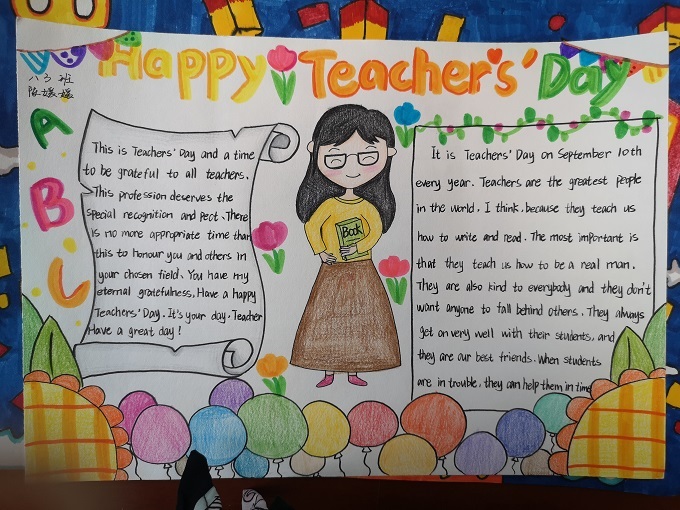 Happy Teachers' Day
八3班
陈媛媛
A
B
L
This is Teachers' Day and a time
to be grateful to all teachers.
This profession deserves the
special recognition and pect. There
is no more appropriate time than
this to honour you and others in
your chosen field. You have my
eternal gratefulness. Have a happy
Teachers' Day. It's your day. Teacher
Have a great day!
Book
It is Teachers' Day on September 10th
every year. Teachers are the greatest people
in the world, I think, because they teach us
how to write and read. The most important is
that they teach us how to be a real man.
They are also kind to everybody and they don't
want anyone to fall behind others. They always
get on very well with their students, and
they are our best friends. When students
are in trouble, they can help them in time